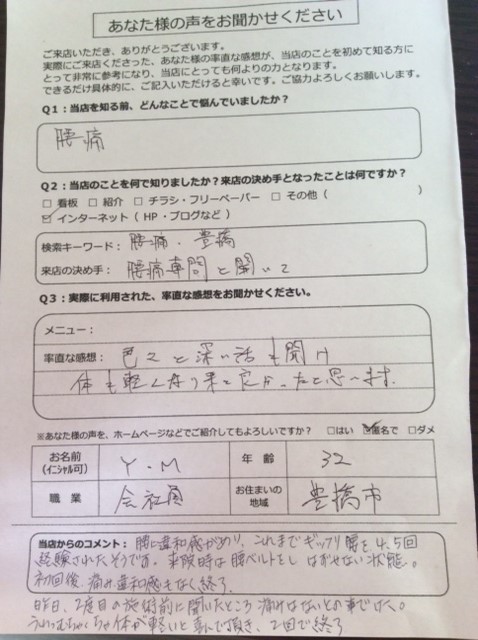 あなた様の声をお聞かせください
ご来店いただき、ありがとうございます。
実際にご来店くださった、あなた様の率直な感想が、当店のことを初めて知る方に
とって非常に参考になり、当店にとっても何よりの力となります。
できるだけ具体的に、ご記入いただけると幸いです。ご協力よろしくお願いします。
Q1：当店を知る前、どんなことで悩んでいましたか？
腰痛
Q2：当店のことを何で知りましたか？来店の決め手となったことは何ですか？
□ 看板 □ 紹介 □ チラシ・フリーペーパー □ その他（ ）
☑ インターネット（ HP・ブログなど ）
検索キーワード： 腰痛・豊橋
来店の決め手： 腰痛専門と聞いて
Q3：実際に利用された、率直な感想をお聞かせください。
メニュー：
率直な感想： 色々と深い話も聞け
体も軽くなり来て良かったと思います.
※あなた様の声を、ホームページなどでご紹介してもよろしいですか？ □はい ☑匿名で □ダメ
お名前 (イニシャル可) Y・M 年 齢 32
職 業 会社員 お住まいの地域 豊橋市
当店からのコメント： 腰に違和感があり、これまでギックリ腰を4、5回
経験されたそうです。来院時は腰ベルトをし はずせない状態。
初回後、痛み違和感もなく終了.
昨日、2度目の施術前に聞いたところ 痛みはないとの事でした。
体が軽いと喜んで頂き、2回で終了